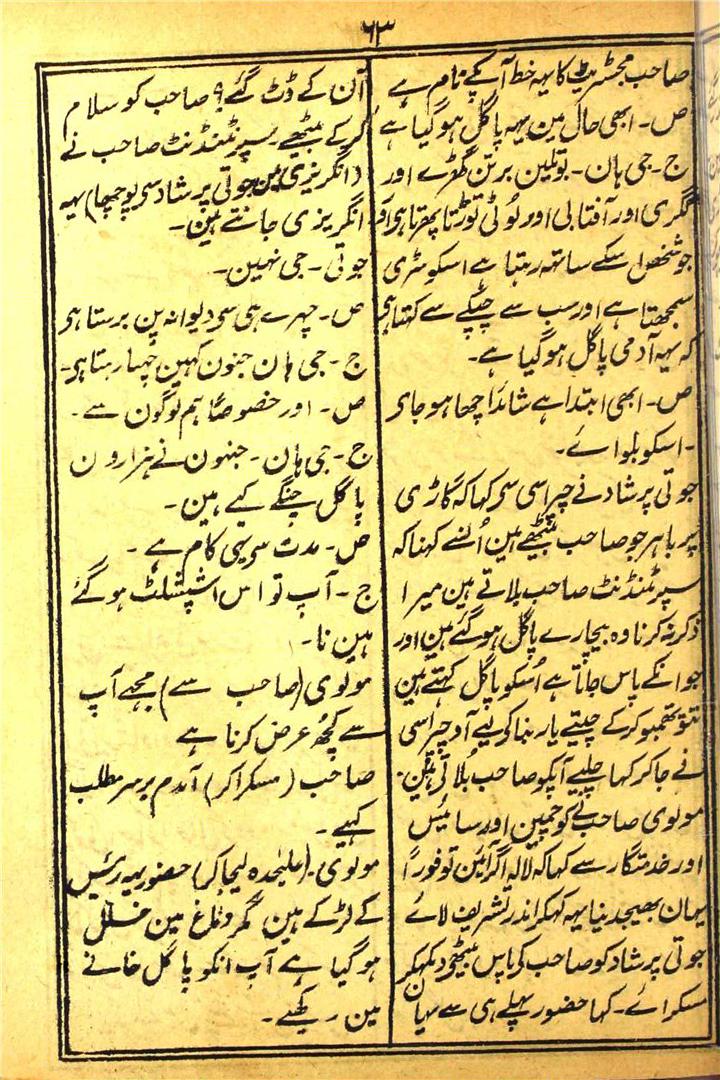 ٦٣
صاحب مجسٹریٹ کا یہہ خط آپکے نام ہے
ص۔ ابھی حال مین یہہ پاگل ہو گیا ہے
ج۔ جی ہان۔ بوتلین برتن گھڑے اور
گگری اور آفتابی اور لوٹی توڑتا پھرتا ہی اور
جو شخص اسکے ساتھ رہتا ہے اسکو سڑی
سمجھتا ہے اور سب سے چپکے سے کہتا ہی
کہ یہہ آدمی پاگل ہو گیا ہے۔
ص۔ ابھی ابتدا ہے شائد اچھا ہو جاے
۔ اسکو بلوائے۔
جوتی پرشاد نے چپراسی سی کہا کہ گاڑی
پر باہر جو صاحب بیٹھے ہین اُنسے کہنا کہ
سپرنٹنڈنٹ صاحب بلاتے ہین میرا
ذکر نہ کرنا وہ بیچارے پاگل ہو گئے ہین اور
جو انکے پاس جاتا ہے اُسکو پاگل کہتے ہین
تتو تھمبو کر کے جیتے یار بنا کی لیے آو چپراسی
نے جا کر کہا چلیے آپکو صاحب بُلاتی ہین۔
مولوی صاحب نے کوچمین اور سائیس
اور خدمتگار سے کہا کہ لالہ اگر آئین تو فوراً
یہان بھیجدینا یہہ کہکر اندر تشریف لائے
جوتی پرشاد کو صاحب کی پاس بیٹھی دیکھکر
مسکرائے۔ کہا حضور پہلے ہی سے یہان
آن کے ڈٹ گئے؟ صاحب کو سلام
کر کے بیٹھے۔ سپرنٹنڈنٹ صاحب نے
(انگریزی مین جوتی پرشاد سی پوچھا) یہہ
انگریزی جانتے ہین۔
جوتی۔ جی نہین۔
ص۔ چہرے ہی سی دیوانہ پن برستا ہی
ج۔ جی ہان جنون کہین چھپا رہتا ہی۔
ص۔ اور خصوصاً ہم لوگون سے۔
ج۔ جی ہان۔ جنہون نے ہزارون
پاگل چنگے کیے ہین۔
ص۔ مدت سی یہی کام ہے۔
ج۔ آپ تو اس اشپشلٹ ہو گئے
ہین نا۔
مولوی (صاحب سے) مجھے آپ
سے کچھ عرض کرنا ہے
صاحب (مسکرا کر) آمدم برسر مطلب
کہیے۔
مولوی۔ (علیحدہ لیجا کر) حضور یہ رئیس
کے لڑکے ہین مگر دماغ مین خلل
ہو گیا ہے آپ انکو پاگل خانے
مین رکھیے۔